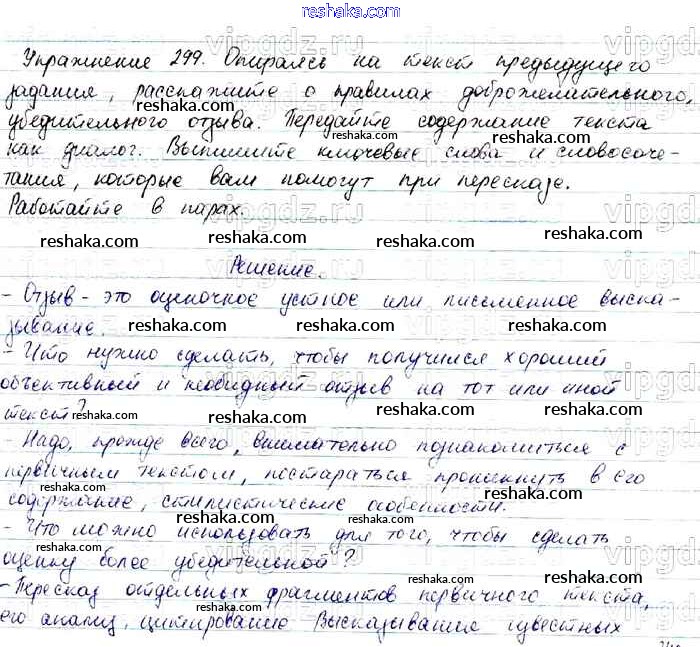 reshaka.com
Упражнение 299. Опираясь на текст предыдущего
задания, расскажите о правилах доброжелательного,
убедительного отзыва. Передайте содержание текста
как диалог. Выпишите ключевые слова и словосоче-
тания, которые вам помогут при пересказе.
Работайте в парах.
reshaka.com reshaka.com reshaka.com
Решение.
- Отзыв - это оценочное устное или письменное выска-
зывание.
reshaka.com reshaka.com reshaka.com
- Что нужно сделать, чтобы получился хороший
объективный и необидный отзыв на тот или иной
текст?
reshaka.com reshaka.com reshaka.com
- Надо, прежде всего, внимательно познакомиться с
первичным текстом, постараться проникнуть в его
содержание, стилистические особенности.
reshaka.com reshaka.com reshaka.com
- Что можно использовать для того, чтобы сделать
оценку более убедительной?
reshaka.com reshaka.com reshaka.com
- Пересказ отдельных фрагментов первичного текста,
его анализ, цитирование Высказывания известных
reshaka.com reshaka.com reshaka.com